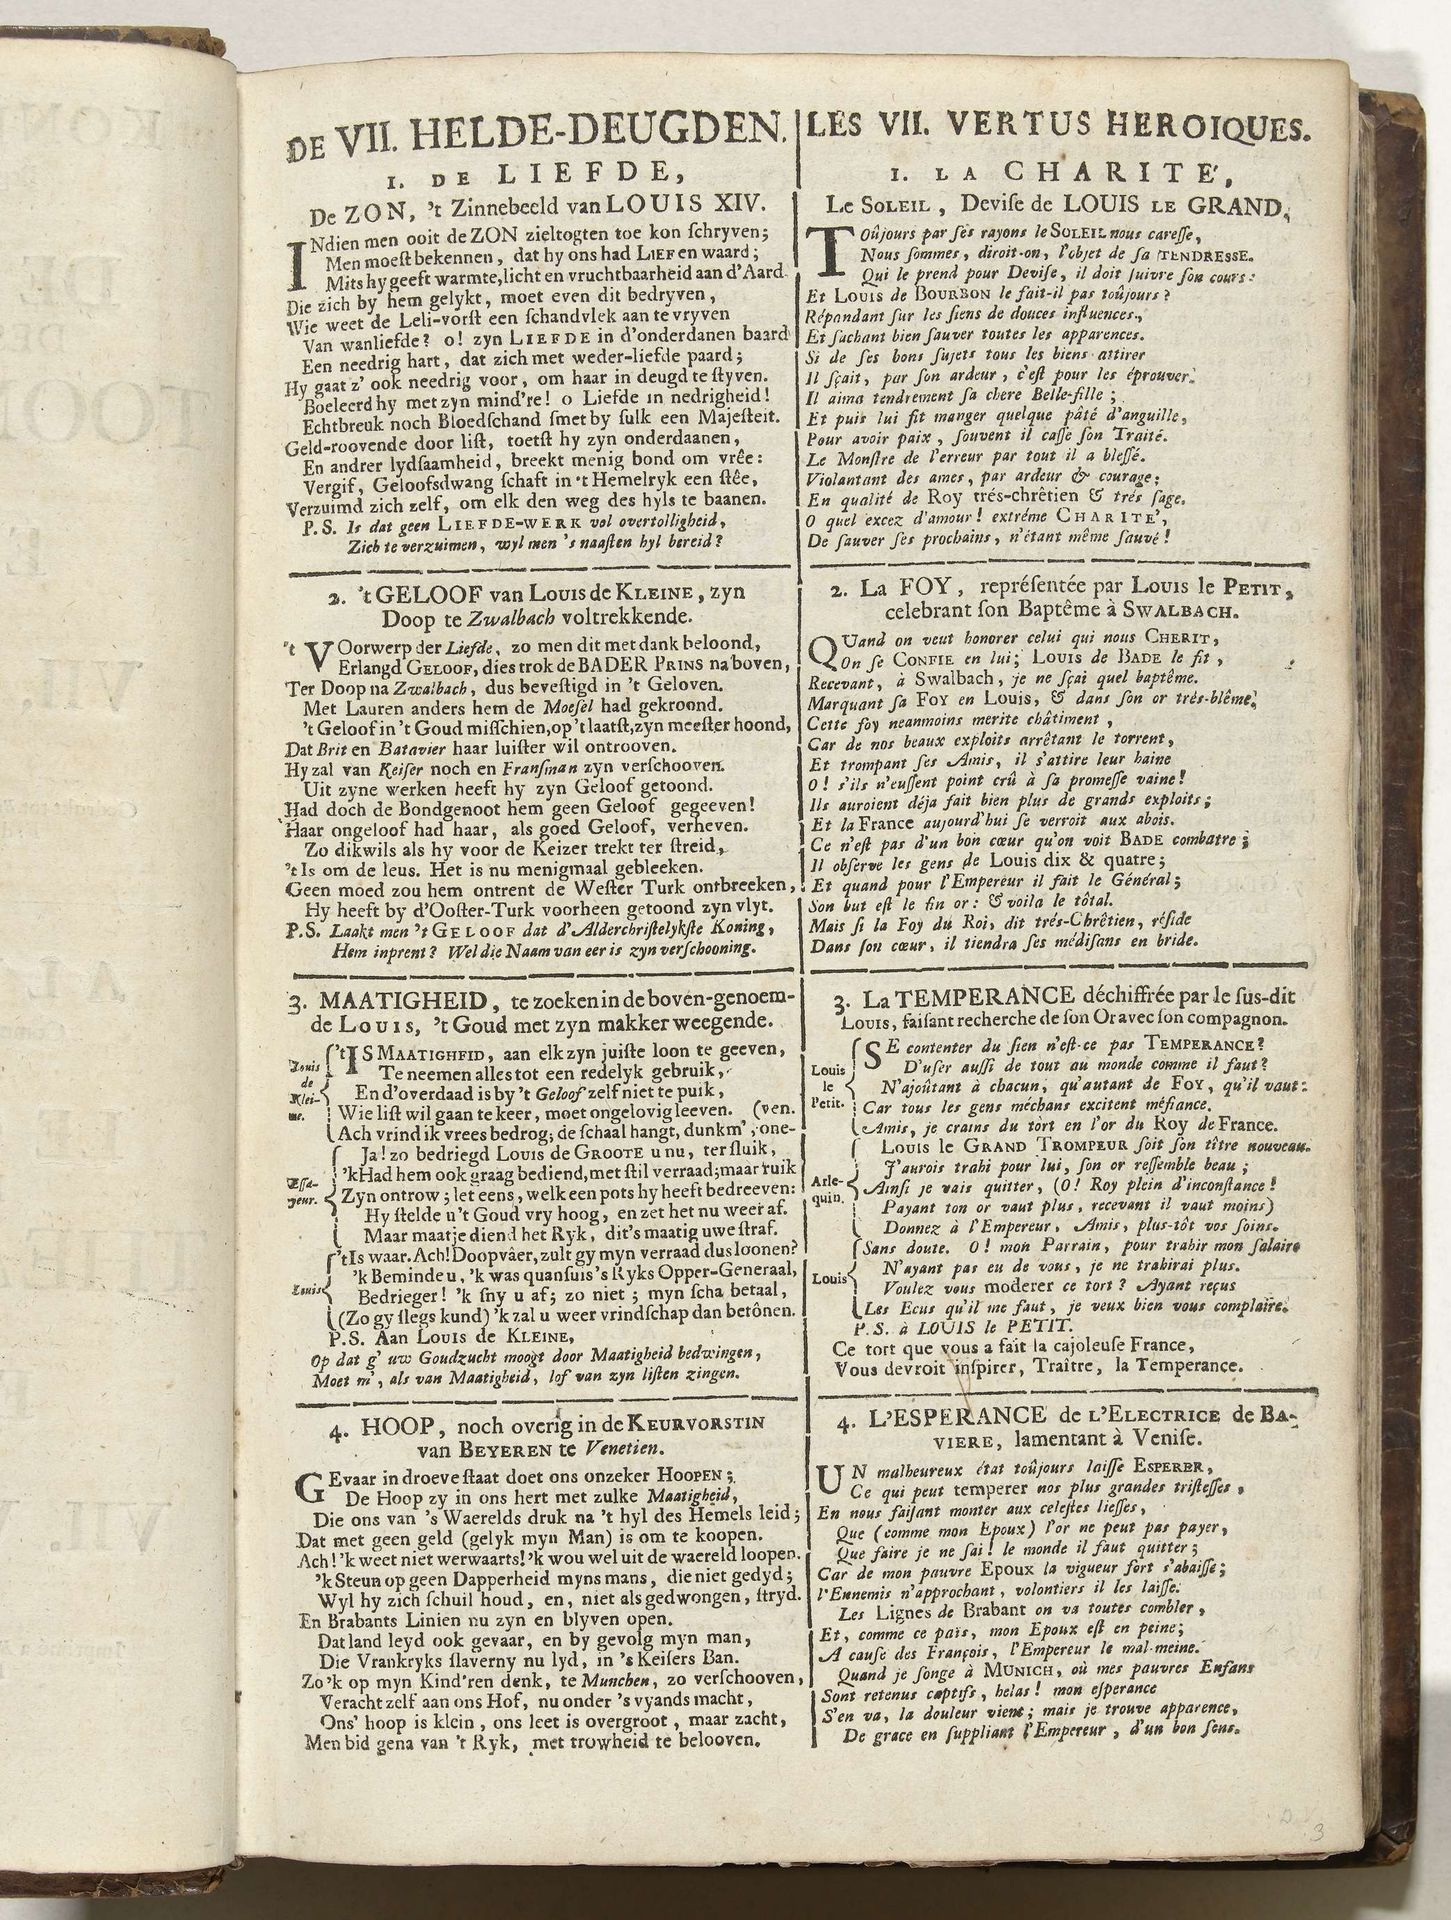 DE VII. HELDE-DEUGDEN.
I. DE LIEFDE,
De ZON, 't Zinnebeeld van LOUIS XIV.
INdien men ooit de ZON zieltogten toe kon schryven;
Men moest bekennen, dat hy ons had LIEF en waard;
Mits hy geeft warmte, licht en vruchtbaarheid aan d'Aard.
Die zich by hem gelykt, moet even dit bedryven,
Wie weet de Leli-vorst een schandvlek aan te vryven
Van wanliefde? o! zyn LIEFDE in d'onderdanen baard
Een needrig hart, dat zich met weder-liefde paard;
Hy gaat z' ook needrig voor, om haar in deugd te styven.
Boeleerd hy met zyn mind're! o Liefde in nedrigheid!
Echtbreuk noch Bloedschand smet by sulk een Majesteit.
Geld-roovende door list, toetst hy zyn onderdaanen,
En andrer lydsaamheid, breekt menig bond om vrêe:
Vergif, Geloofsdwang schaft in 't Hemelryk een stêe,
Verzuimd zich zelf, om elk den weg des hyls te baanen.
P.S. Is dat geen LIEFDE-WERK vol overtolligheid,
Zich te verzuimen, wyl men 's naasten hyl bereid?
2. 't GELOOF van LOUIS de KLEINE, zyn
Doop te Zwalbach voltrekkende.
't VOorwerp der Liefde, zo men dit met dank beloond,
Erlangd GELOOF, dies trok de BADER PRINS na boven,
Ter Doop na Zwalbach, dus bevestigd in 't Geloven.
Met Lauren anders hem de Moesel had gekroond.
't Geloof in 't Goud misschien, op 't laatst, zyn meester hoond,
Dat Brit en Batavier haar luister wil ontrooven.
Hy zal van Keiser noch en Fransman zyn verschooven.
Uit zyne werken heeft hy zyn Geloof getoond.
Had doch de Bondgenoot hem geen Geloof gegeeven!
Haar ongeloof had haar, als goed Geloof, verheven.
Zo dikwils als hy voor de Keizer trekt ter streid,
't Is om de leus. Het is nu menigmaal gebleeken.
Geen moed zou hem ontrent de Wester Turk ontbreeken,
Hy heeft by d'Ooster-Turk voorheen getoond zyn vlyt.
P.S. Laakt men 't GELOOF dat d'Alderchristelykste Koning,
Hem inprent? Wel die Naam van eer is zyn verschooning.
3. MAATIGHEID, te zoeken in de boven-genoem-
de LOUIS, 't Goud met zyn makker weegende.
Louis de Klei-ne. 'tIS MAATIGHEID, aan elk zyn juiste loon te geeven,
Te neemen alles tot een redelyk gebruik,
En d'overdaad is by 't Geloof zelf niet te puik,
Wie list wil gaan te keer, moet ongelovig leeven. (ven.
Ach vrind ik vrees bedrog; de schaal hangt, dunkm', one-
Ja! zo bedriegd LOUIS de GROOTE u nu, ter sluik,
'k Had hem ook graag bediend, met stil verraad; maar 'ruik
Essa-yeur. Zyn ontrow; let eens, welk een pots hy heeft bedreeven:
Hy stelde u 't Goud vry hoog, en zet het nu weer af.
Maar maatje diend het Ryk, dit's maatig uwe straf.
't Is waar. Ach! Doopvâer, zult gy myn verraad dus loonen?
'k Beminde u, 'k was quansuis 's Ryks Opper-Generaal,
Louis Bedrieger! 'k sny u af; zo niet; myn scha betaal,
(Zo gy slegs kund) 'k zal u weer vrindschap dan betônen.
P.S. Aan LOUIS de KLEINE,
Op dat g' uw Goudzucht moogt door Maatigheid bedwingen,
Moet m', als van Maatigheid, lof van zyn listen zingen.
4. HOOP, noch overig in de KEURVORSTIN
van BEYEREN te Venetien.
GEvaar in droeve staat doet ons onzeker HOOPEN;
De Hoop zy in ons hert met zulke Maatigheid,
Die ons van 's Waerelds druk na 't hyl des Hemels leid;
Dat met geen geld (gelyk myn Man) is om te koopen.
Ach! 'k weet niet werwaarts! 'k wou wel uit de waereld loopen.
'k Steun op geen Dapperheid myns mans, die niet gedyd;
Wyl hy zich schuil houd, en, niet als gedwongen, stryd.
En Brabants Linien nu zyn en blyven open.
Dat land leyd ook gevaar, en by gevolg myn man,
Die Vrankryks slaverny nu lyd, in 's Keisers Ban.
Zo 'k op myn Kind'ren denk, te Munchen, zo verschooven,
Veracht zelf aan ons Hof, nu onder 's vyands macht,
Ons' hoop is klein, ons leet is overgroot, maar zacht,
Men bid gena van 't Ryk, met trowheid te belooven.
LES VII. VERTUS HEROIQUES.
I. LA CHARITÉ,
Le SOLEIL, Devise de LOUIS LE GRAND,
TOûjours par ses rayons le SOLEIL nous caresse,
Nous sommes, diroit-on, l'objet de sa TENDRESSE.
Qui le prend pour Devise, il doit suivre son cours:
Et LOUIS de BOURBON le fait-il pas toûjours?
Répandant sur les siens de douces influences,
Et sachant bien sauver toutes les apparences.
Si de ses bons sujets tous les biens attirer
Il sçait, par son ardeur, c'est pour les éprouver.
Il aima tendrement sa chere Belle-fille;
Et puis lui fit manger quelque pâté d'anguille,
Pour avoir paix, souvent il casse son Traité.
Le Monstre de l'erreur par tout il a blessé.
Violantant des ames, par ardeur & courage;
En qualité de Roy trés-chrêtien & trés sage.
O quel excez d'amour! extréme CHARITE',
De sauver ses prochains, n'étant même sauvé!
2. La FOY, représentée par LOUIS le PETIT,
celebrant son Baptême à SWALBACH.
QUand on veut honorer celui qui nous CHERIT,
On se CONFIE en lui; LOUIS de BADE le fit,
Recevant, à Swalbach, je ne sçai quel baptême.
Marquant sa FOY en Louis, & dans son or trés-blême.
Cette foy neanmoins merite châtiment,
Car de nos beaux exploits arrêtant le torrent,
Et trompant ses Amis, il s'attire leur haine
O! s'ils n'eussent point crû à sa promesse vaine!
Ils auroient déja fait bien plus de grands exploits;
Et la France aujourd'hui se verroit aux abois.
Ce n'est pas d'un bon cœur qu'on voit BADE combatre;
Il observe les gens de Louis dix & quatre;
Et quand pour l'Empereur il fait le Général;
Son but est le fin or: & voila le tôtal.
Mais si la Foy du Roi, dit trés-Chrêtien, réside
Dans son cœur, il tiendra ses médisans en bride.
3. La TEMPERANCE déchiffrée par le sus-dit
LOUIS, faisant recherche de son Or avec son compagnon.
Louis le Petit. SE contenter du sien n'est-ce pas TEMPERANCE?
D'user aussi de tout au monde comme il faut?
N'ajoûtant à chacun, qu'autant de FOY, qu'il vaut:
Car tous les gens méchans excitent méfiance.
Amis, je crains du tort en l'or du Roy de France.
LOUIS le GRAND TROMPEUR soit son tître nouveau.
J'aurois trahi pour lui, son or ressemble beau;
Arle-quin. Ainsi je vais quitter, (O! Roy plein d'inconstance!
Payant ton or vaut plus, recevant il vaut moins)
Donnez à l'Empereur, Amis, plus-tôt vos soins.
Sans doute. O! mon Parrain, pour trahir mon salaire
N'ayant pas eu de vous, je ne trahirai plus.
Louis Voulez vous moderer ce tort? Ayant reçus
Les Ecus qu'il me faut, je veux bien vous complaire.
P.S. à LOUIS le PETIT.
Ce tort que vous a fait la cajoleuse France,
Vous devroit inspirer, Traître, la Temperance.
4. L'ESPERANCE de L'ELECTRICE de BA-
VIERE, lamentant à Venise.
UN malheureux état toûjours laisse ESPERER,
Ce qui peut temperer nos plus grandes tristesses,
En nous faisant monter aux celestes liesses,
Que (comme mon Epoux) l'or ne peut pas payer,
Que faire je ne sai! le monde il faut quitter;
Car de mon pauvre Epoux la vigueur fort s'abaisse;
l'Ennemis n'approchant, volontiers il les laisse.
Les Lignes de Brabant on va toutes combler,
Et, comme ce païs, mon Epoux est en peine;
A cause des François, l'Empereur le mal-meine.
Quand je songe à MUNICH, où mes pauvres Enfans
Sont retenus captifs, helas! mon esperance
S'en va, la douleur vient; mais je trouve apparence,
De grace en suppliant l'Empereur, d'un bon sens.
3